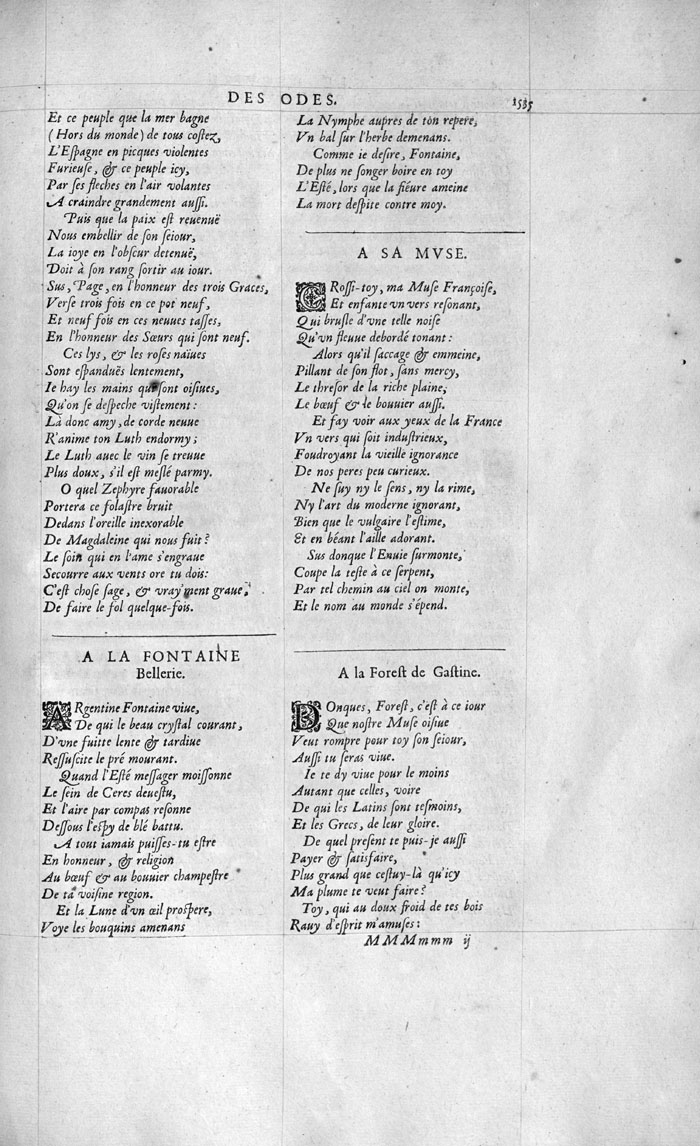 DES ODES.
1535
Et ce peuple que la mer bagne
(Hors du monde) de tous costez,
L'Espagne en picques violentes
Furieuse, & ce peuple icy,
Par ses fleches en l'air volantes
A craindre grandement aussi.
Puis que la paix est reuenuë
Nous embellir de son seiour,
La ioye en l'obscur detenuë,
Doit à son rang sortir au iour.
Sus, Page, en l'honneur des trois Graces,
Verse trois fois en ce pot neuf,
Et neuf fois en ces neuues tasses,
En l'honneur des Sœurs qui sont neuf.
Ces lys, & les roses naïues
Sont espanduës lentement,
Ie hay les mains qui sont oisiues,
Qu'on se despeche vistement:
Là donc amy, de corde neuue
R'anime ton Luth endormy;
Le Luth auec le vin se treuue
Plus doux, s'il est meslé parmy.
O quel Zephyre fauorable
Portera ce folastre bruit
Dedans l'oreille inexorable
De Magdaleine qui nous fuit?
Le soin qui en l'ame s'engraue
Secourre aux vents ore tu dois:
C'est chose sage, & vray'ment graue,
De faire le fol quelque-fois.
A LA FONTAINE
Bellerie.
ARgentine Fontaine viue,
De qui le beau crystal courant,
D'vne fuitte lente & tardiue
Ressuscite le pré mourant.
Quand l'Esté messager moissonne
Le sein de Ceres deuestu,
Et l'aire par compas resonne
Dessous l'espy de blé battu.
A tout iamais puisses-tu estre
En honneur, & religion
Au bœuf & au bouuier champestre
De ta voisine region.
Et la Lune d'vn œil prospere,
Voye les bouquins amenans
La Nymphe aupres de ton repere,
Vn bal sur l'herbe demenans.
Comme ie desire, Fontaine,
De plus ne songer boire en toy
L'Esté, lors que la fiéure ameine
La mort despite contre moy.
A SA MVSE.
GRossi-toy, ma Muse Françoise,
Et enfante vn vers resonant,
Qui brusle d'vne telle noise
Qu'vn fleuue debordé tonant:
Alors qu'il saccage & emmeine,
Pillant de son flot, sans mercy,
Le thresor de la riche plaine,
Le bœuf & le bouuier aussi.
Et fay voir aux yeux de la France
Vn vers qui soit industrieux,
Foudroyant la vieille ignorance
De nos peres peu curieux.
Ne suy ny le sens, ny la rime,
Ny l'art du moderne ignorant,
Bien que le vulgaire l'estime,
Et en béant l'aille adorant.
Sus donque l'Enuie surmonte,
Coupe la teste à ce serpent,
Par tel chemin au ciel on monte,
Et le nom au monde s'épend.
A la Forest de Gastine.
DOnques, Forest, c'est à ce iour
Que nostre Muse oisiue
Veut rompre pour toy son seiour,
Aussi tu seras viue.
Ie te dy viue pour le moins
Autant que celles, voire
De qui les Latins sont tesmoins,
Et les Grecs, de leur gloire.
De quel present te puis-je aussi
Payer & satisfaire,
Plus grand que cestuy-là qu'icy
Ma plume te veut faire?
Toy, qui au doux froid de tes bois
Rauy d'esprit m'amuses:
MMMmmm ij